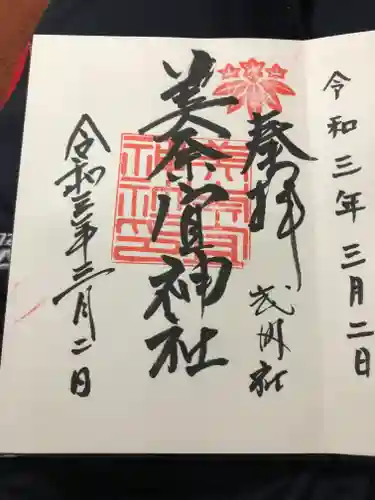 令和三年三月二日
奉拝
美奈宜神社
令和三年三月二日